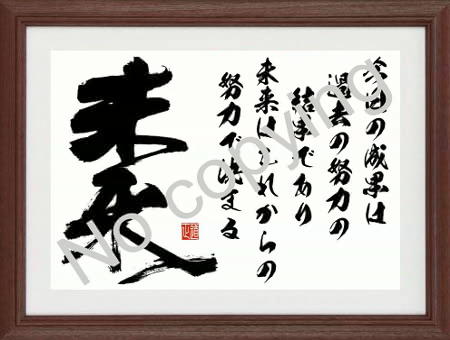 今日の成果は
過去の努力の
結果であり
未来はこれからの
努力で決まる
未来
No copying